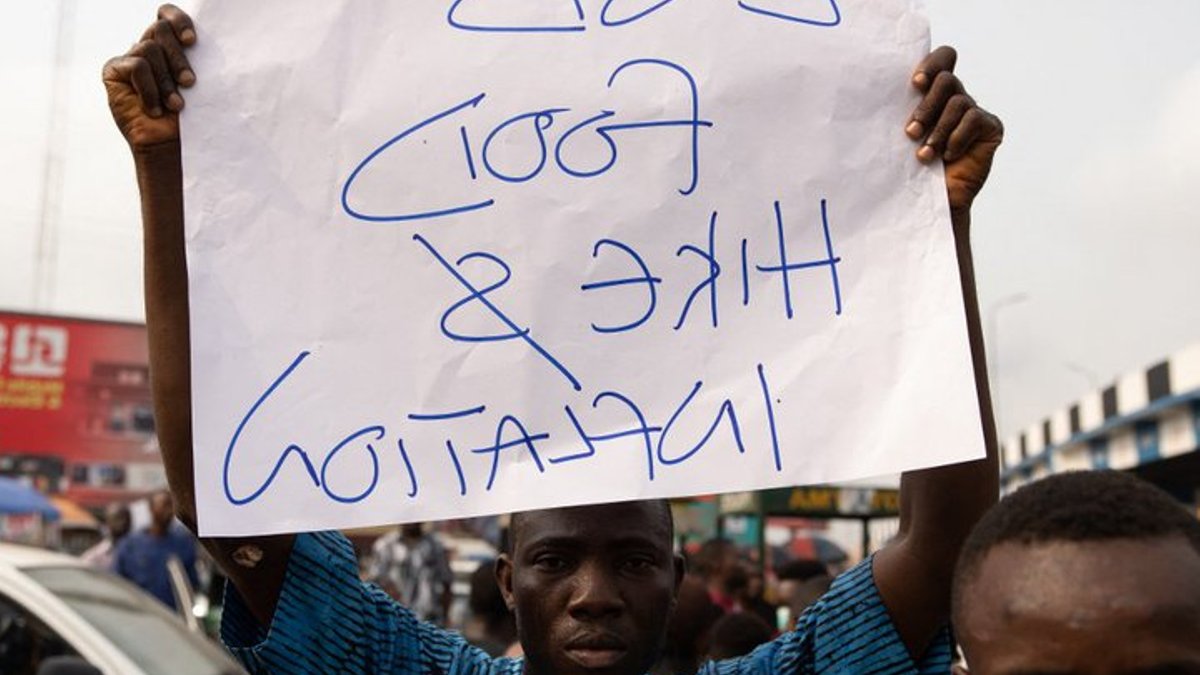 FOOD
HIKE &
INFLATION